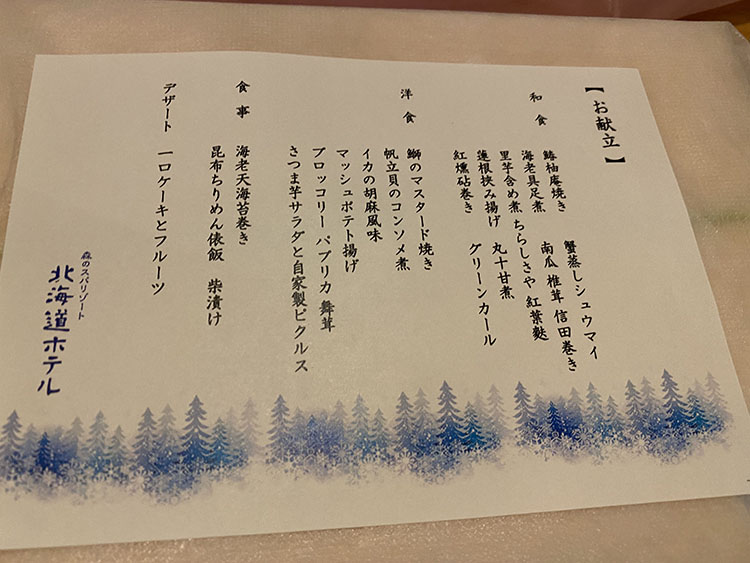 【お献立】
和食 鰆柚庵焼き 蟹蒸しシュウマイ
海老具足煮 南瓜 椎茸 信田巻き
里芋含め煮 ちらしさや 紅葉麩
蓮根挟み揚げ 丸十甘煮
紅燻砧巻き グリーンカール
洋食 鰤のマスタード焼き
帆立貝のコンソメ煮
イカの胡麻風味
マッシュポテト揚げ
ブロッコリー パプリカ 舞茸
さつま芋サラダと自家製ピクルス
食事 海老天海苔巻き
昆布ちりめん俵飯 柴漬け
デザート 一口ケーキとフルーツ
森のスパリゾート
北海道ホテル